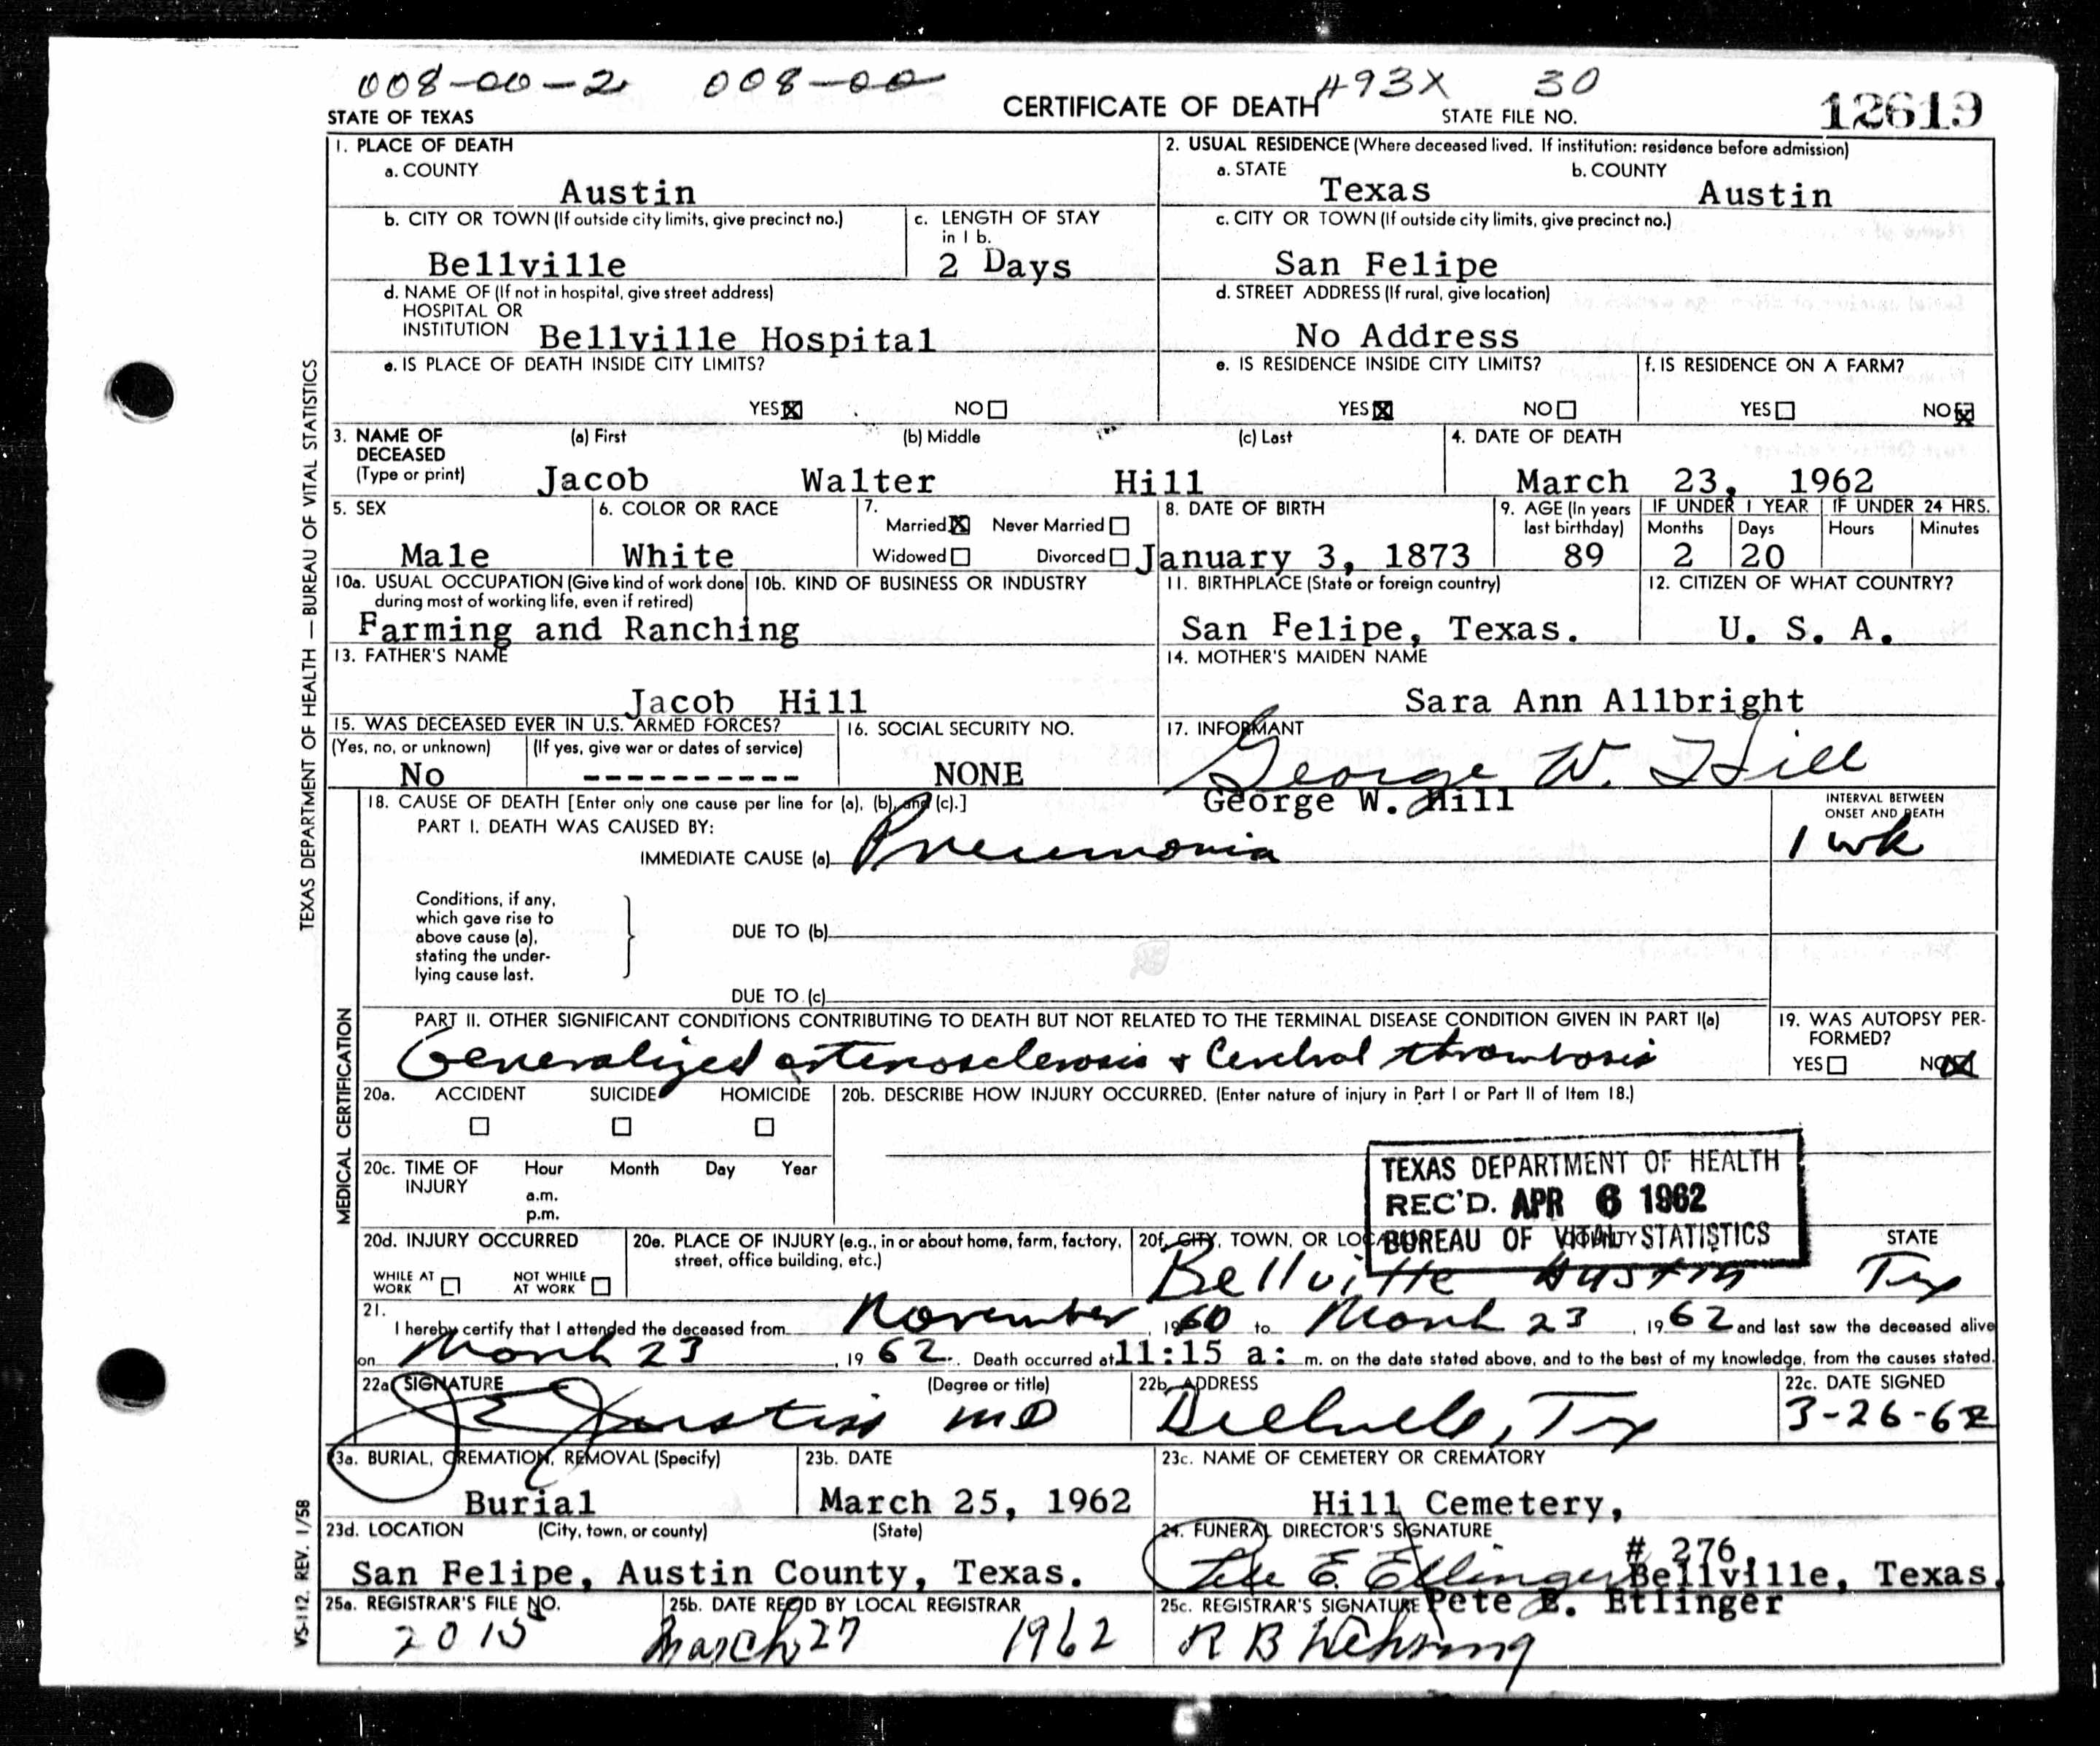 008-00-2 008-00 493X 30
STATE OF TEXAS CERTIFICATE OF DEATH STATE FILE NO. 12619
1. PLACE OF DEATH
a. COUNTY
Austin
2. USUAL RESIDENCE (Where deceased lived. If institution: residence before admission)
a. STATE b. COUNTY
Texas Austin
b. CITY OR TOWN (If outside city limits, give precinct no.)
Bellville
c. LENGTH OF STAY
in 1 b.
2 Days
c. CITY OR TOWN (If outside city limits, give precinct no.)
San Felipe
d. NAME OF (If not in hospital, give street address)
HOSPITAL OR
INSTITUTION Bellville Hospital
d. STREET ADDRESS (If rural, give location)
No Address
e. IS PLACE OF DEATH INSIDE CITY LIMITS?
YES NO
e. IS RESIDENCE INSIDE CITY LIMITS?
YES NO
f. IS RESIDENCE ON A FARM?
YES NO
3. NAME OF (a) First (b) Middle (c) Last
DECEASED
(Type or print) Jacob Walter Hill
4. DATE OF DEATH
March 23, 1962
5. SEX
Male
6. COLOR OR RACE
White
7.
Married Never Married
Widowed Divorced
8. DATE OF BIRTH
January 3, 1873
9. AGE (In years
last birthday)
89
IF UNDER 1 YEAR
Months Days
2 20
IF UNDER 24 HRS.
Hours Minutes
10a. USUAL OCCUPATION (Give kind of work done
during most of working life, even if retired)
Farming and Ranching
10b. KIND OF BUSINESS OR INDUSTRY
11. BIRTHPLACE (State or foreign country)
San Felipe, Texas.
12. CITIZEN OF WHAT COUNTRY?
U. S. A.
13. FATHER'S NAME
Jacob Hill
14. MOTHER'S MAIDEN NAME
Sara Ann Allbright
15. WAS DECEASED EVER IN U.S. ARMED FORCES?
(Yes, no, or unknown) (If yes, give war or dates of service)
No ----------
16. SOCIAL SECURITY NO.
NONE
17. INFORMANT
George W. Hill
George W. Hill
18. CAUSE OF DEATH [Enter only one cause per line for (a), (b), and (c).]
PART I. DEATH WAS CAUSED BY:
IMMEDIATE CAUSE (a) Pneumonia
INTERVAL BETWEEN
ONSET AND DEATH
1 wk
Conditions, if any,
which gave rise to
above cause (a),
stating the under-
lying cause last.
DUE TO (b)
DUE TO (c)
PART II. OTHER SIGNIFICANT CONDITIONS CONTRIBUTING TO DEATH BUT NOT RELATED TO THE TERMINAL DISEASE CONDITION GIVEN IN PART I(a)
Generalized arteriosclerosis & Cerebral thrombosis
19. WAS AUTOPSY PER-
FORMED?
YES NO
20a. ACCIDENT SUICIDE HOMICIDE
20b. DESCRIBE HOW INJURY OCCURRED. (Enter nature of injury in Part I or Part II of Item 18.)
20c. TIME OF Hour Month Day Year
INJURY
a.m.
p.m.
TEXAS DEPARTMENT OF HEALTH
REC'D. APR 6 1962
BUREAU OF VITAL STATISTICS
20d. INJURY OCCURRED
WHILE AT WORK NOT WHILE AT WORK
20e. PLACE OF INJURY (e.g., in or about home, farm, factory,
street, office building, etc.)
20f. CITY, TOWN, OR LOCATION COUNTY STATE
Bellville Austin Tex
21.
I hereby certify that I attended the deceased from November, 1960 to March 23, 1962 and last saw the deceased alive
on March 23, 1962. Death occurred at 11:15 a: m. on the date stated above, and to the best of my knowledge, from the causes stated.
22a. SIGNATURE (Degree or title)
MD
22b. ADDRESS
Bellville, Tex
22c. DATE SIGNED
3-26-62
23a. BURIAL, CREMATION, REMOVAL (Specify)
Burial
23b. DATE
March 25, 1962
23c. NAME OF CEMETERY OR CREMATORY
Hill Cemetery,
23d. LOCATION (City, town, or county) (State)
San Felipe, Austin County, Texas.
24. FUNERAL DIRECTOR'S SIGNATURE
# 276,
Pete E. Etlinger Bellville, Texas.
Pete E. Etlinger
25a. REGISTRAR'S FILE NO.
2015
25b. DATE REC'D BY LOCAL REGISTRAR
March 27 1962
25c. REGISTRAR'S SIGNATURE
R B Wehring
TEXAS DEPARTMENT OF HEALTH — BUREAU OF VITAL STATISTICS
MEDICAL CERTIFICATION
VS-112. REV. 1/58